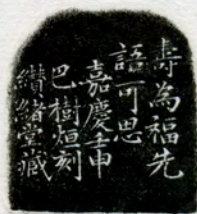 壽為福先
語可思
嘉慶壬申
巴樹烜刻
纘緒堂藏